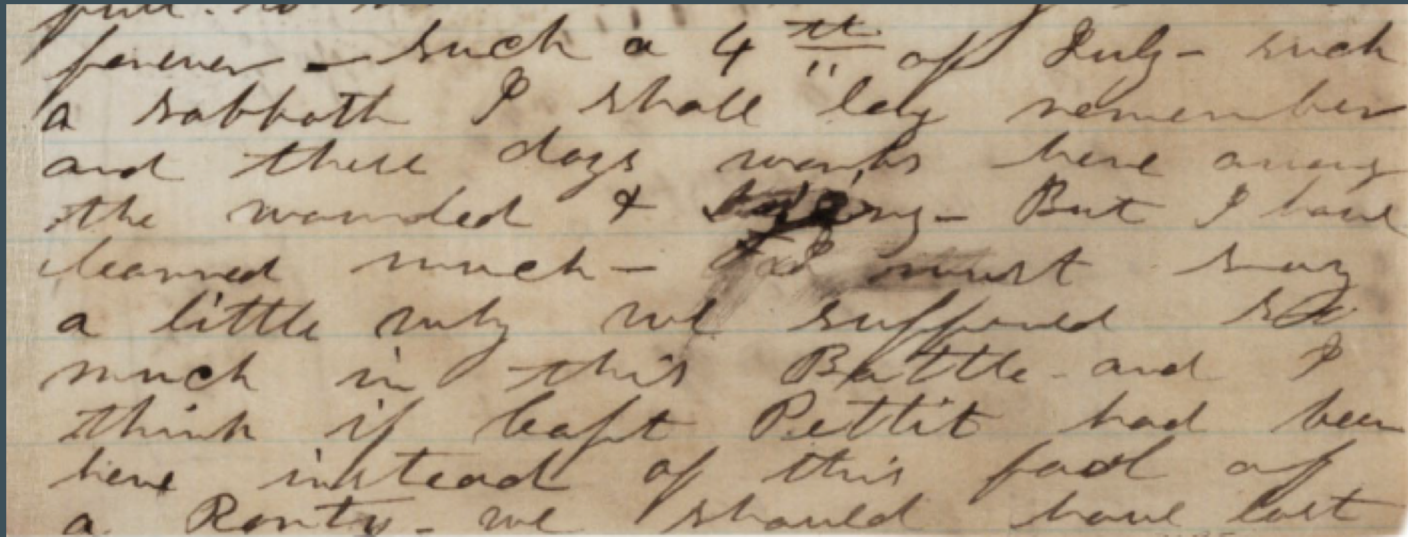 forever - such a 4th of July - such
a sabbath I shall long remember
and these days works here among
the wounded & dying - But I have
learned much - I must say
a little why we suffered so
much in this Battle - and I
think if Capt Pettit had been
here instead of this fool of
a Rorty - we should have lost